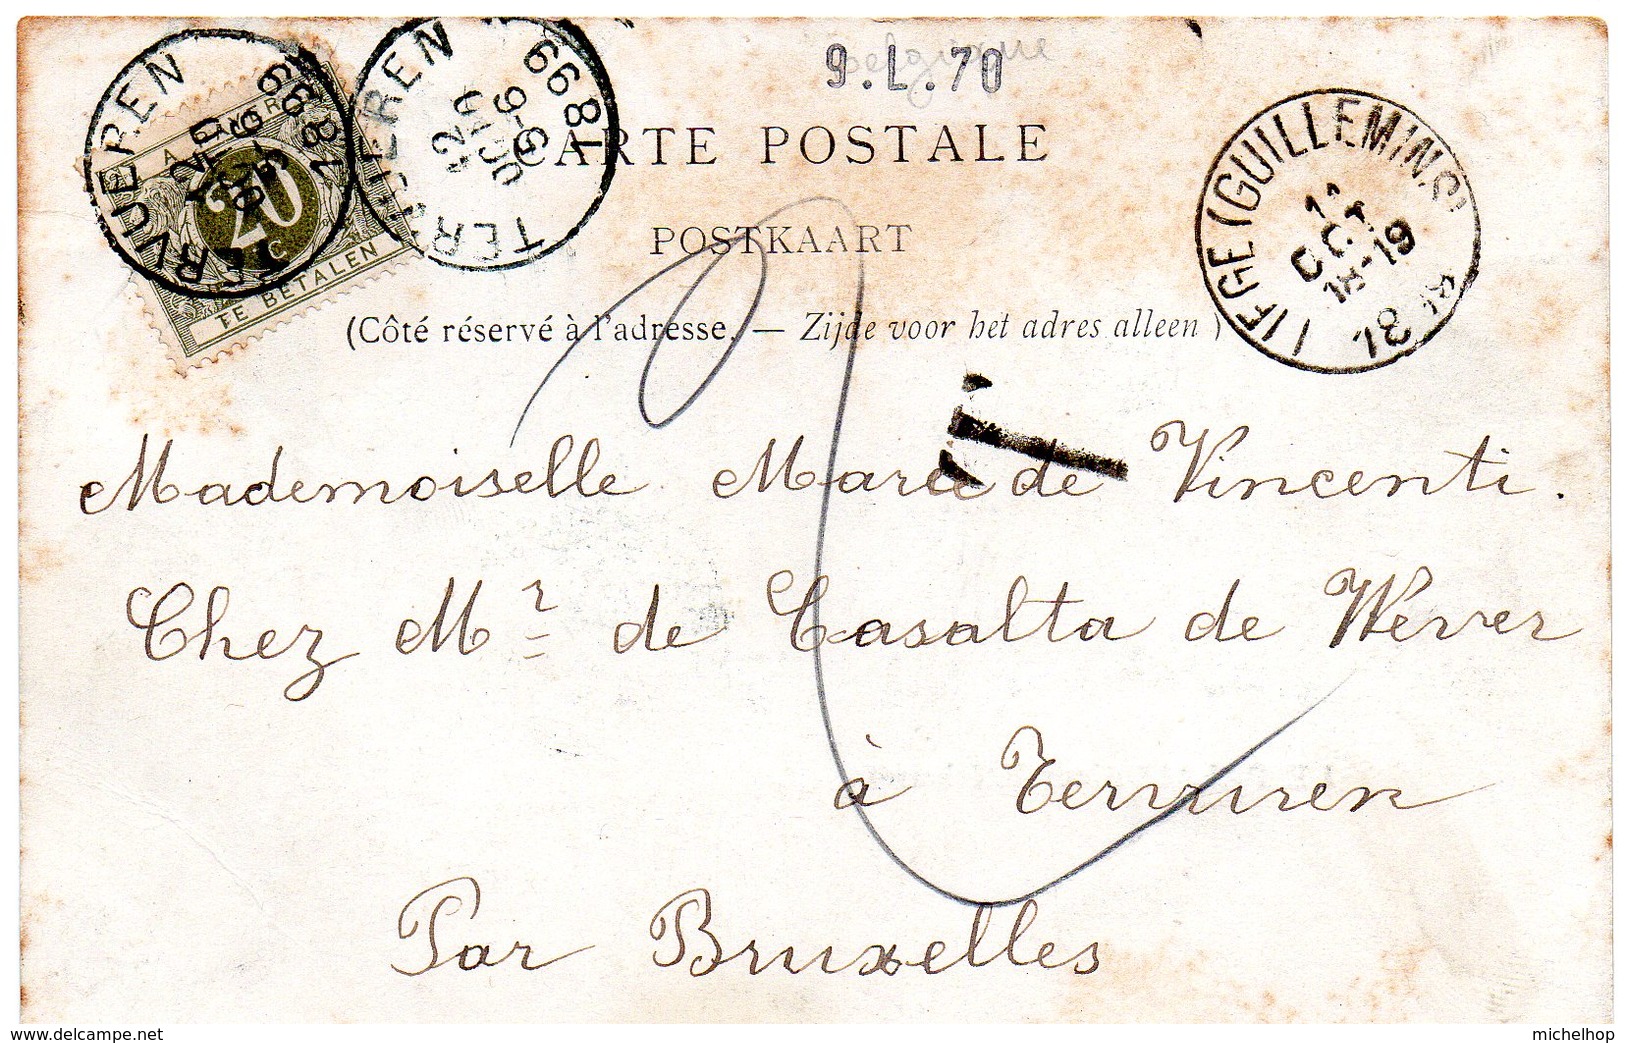 Belgique
9.L.70
CARTE POSTALE
POSTKAART
(Côté réservé à l'adresse. — Zijde voor het adres alleen)
TERVUEREN 1899
A PAYER
20
C
TE BETALEN
TERVUEREN 1899
12
OCTO
6-5
LIEGE (GUILLEMINS)
11
OCT
18-19
T
Mademoiselle Marie de Vincenti.
Chez Mr de Casalta de Wever
à Tervuren
Par Bruxelles
delcampe.net
michelhop